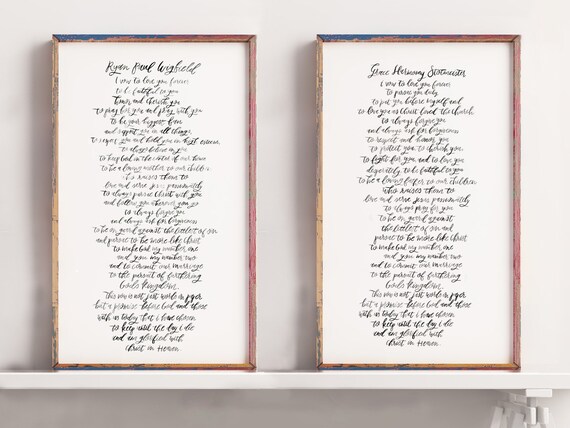 Ryan Paul Wighfield
I vow to love you forever
to be faithful to you
honor and cherish you
to pray for you and pray with you
to be your biggest fan
and support you in all things
to respect you and hold you in high esteem
to always believe in you
to keep God in the center of our home
to be a loving mother to our children
who raises them to
love and serve Jesus passionately
to always pursue Christ with you
and follow you wherever you go
to always forgive you
and always ask for forgiveness
to be on guard against the littlest of sin
and pursue to be more like Christ
to make God my number one
and you my number two
and to commit our marriage
to the pursuit of furthering
God's Kingdom.
This vow is not just words on paper
but a promise before God and those
with us today that I have chosen
to keep until the day I die
and am glorified with
Christ in Heaven.
Grace
I vow to love you forever
to pursue you daily
to put you before myself and
to love you as Christ loved the church,
to always forgive you
and always ask for forgiveness
to respect and honor you
to protect you, to cherish you,
to fight for you, and to love you
desperately, to be faithful to you
to be a loving father to our children
who raises them to
love and serve Jesus passionately
to always pray for you
to be on guard against
the littlest of sin and
pursue to be more like Christ
to make God my number one
and you my number two
and to commit our marriage
to the pursuit of furthering
God's Kingdom.
This vow is not just words on paper
but a promise before God and those
with us today that I have chosen
to keep until the day I die
and am glorified with
Christ in Heaven.